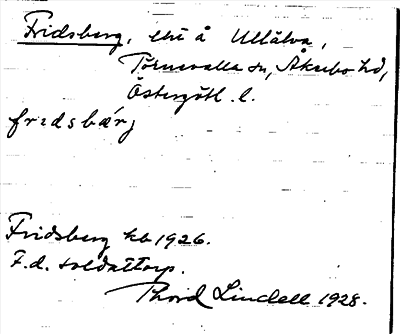 Fridsberg, ehi å Ullälva,
Törnevalla sn, Åkerbo hd,
Östergötl. l.
fridsbärj
Fridsberg kb 1926.
F.d. soldattorp.
Thord Lindell 1928.